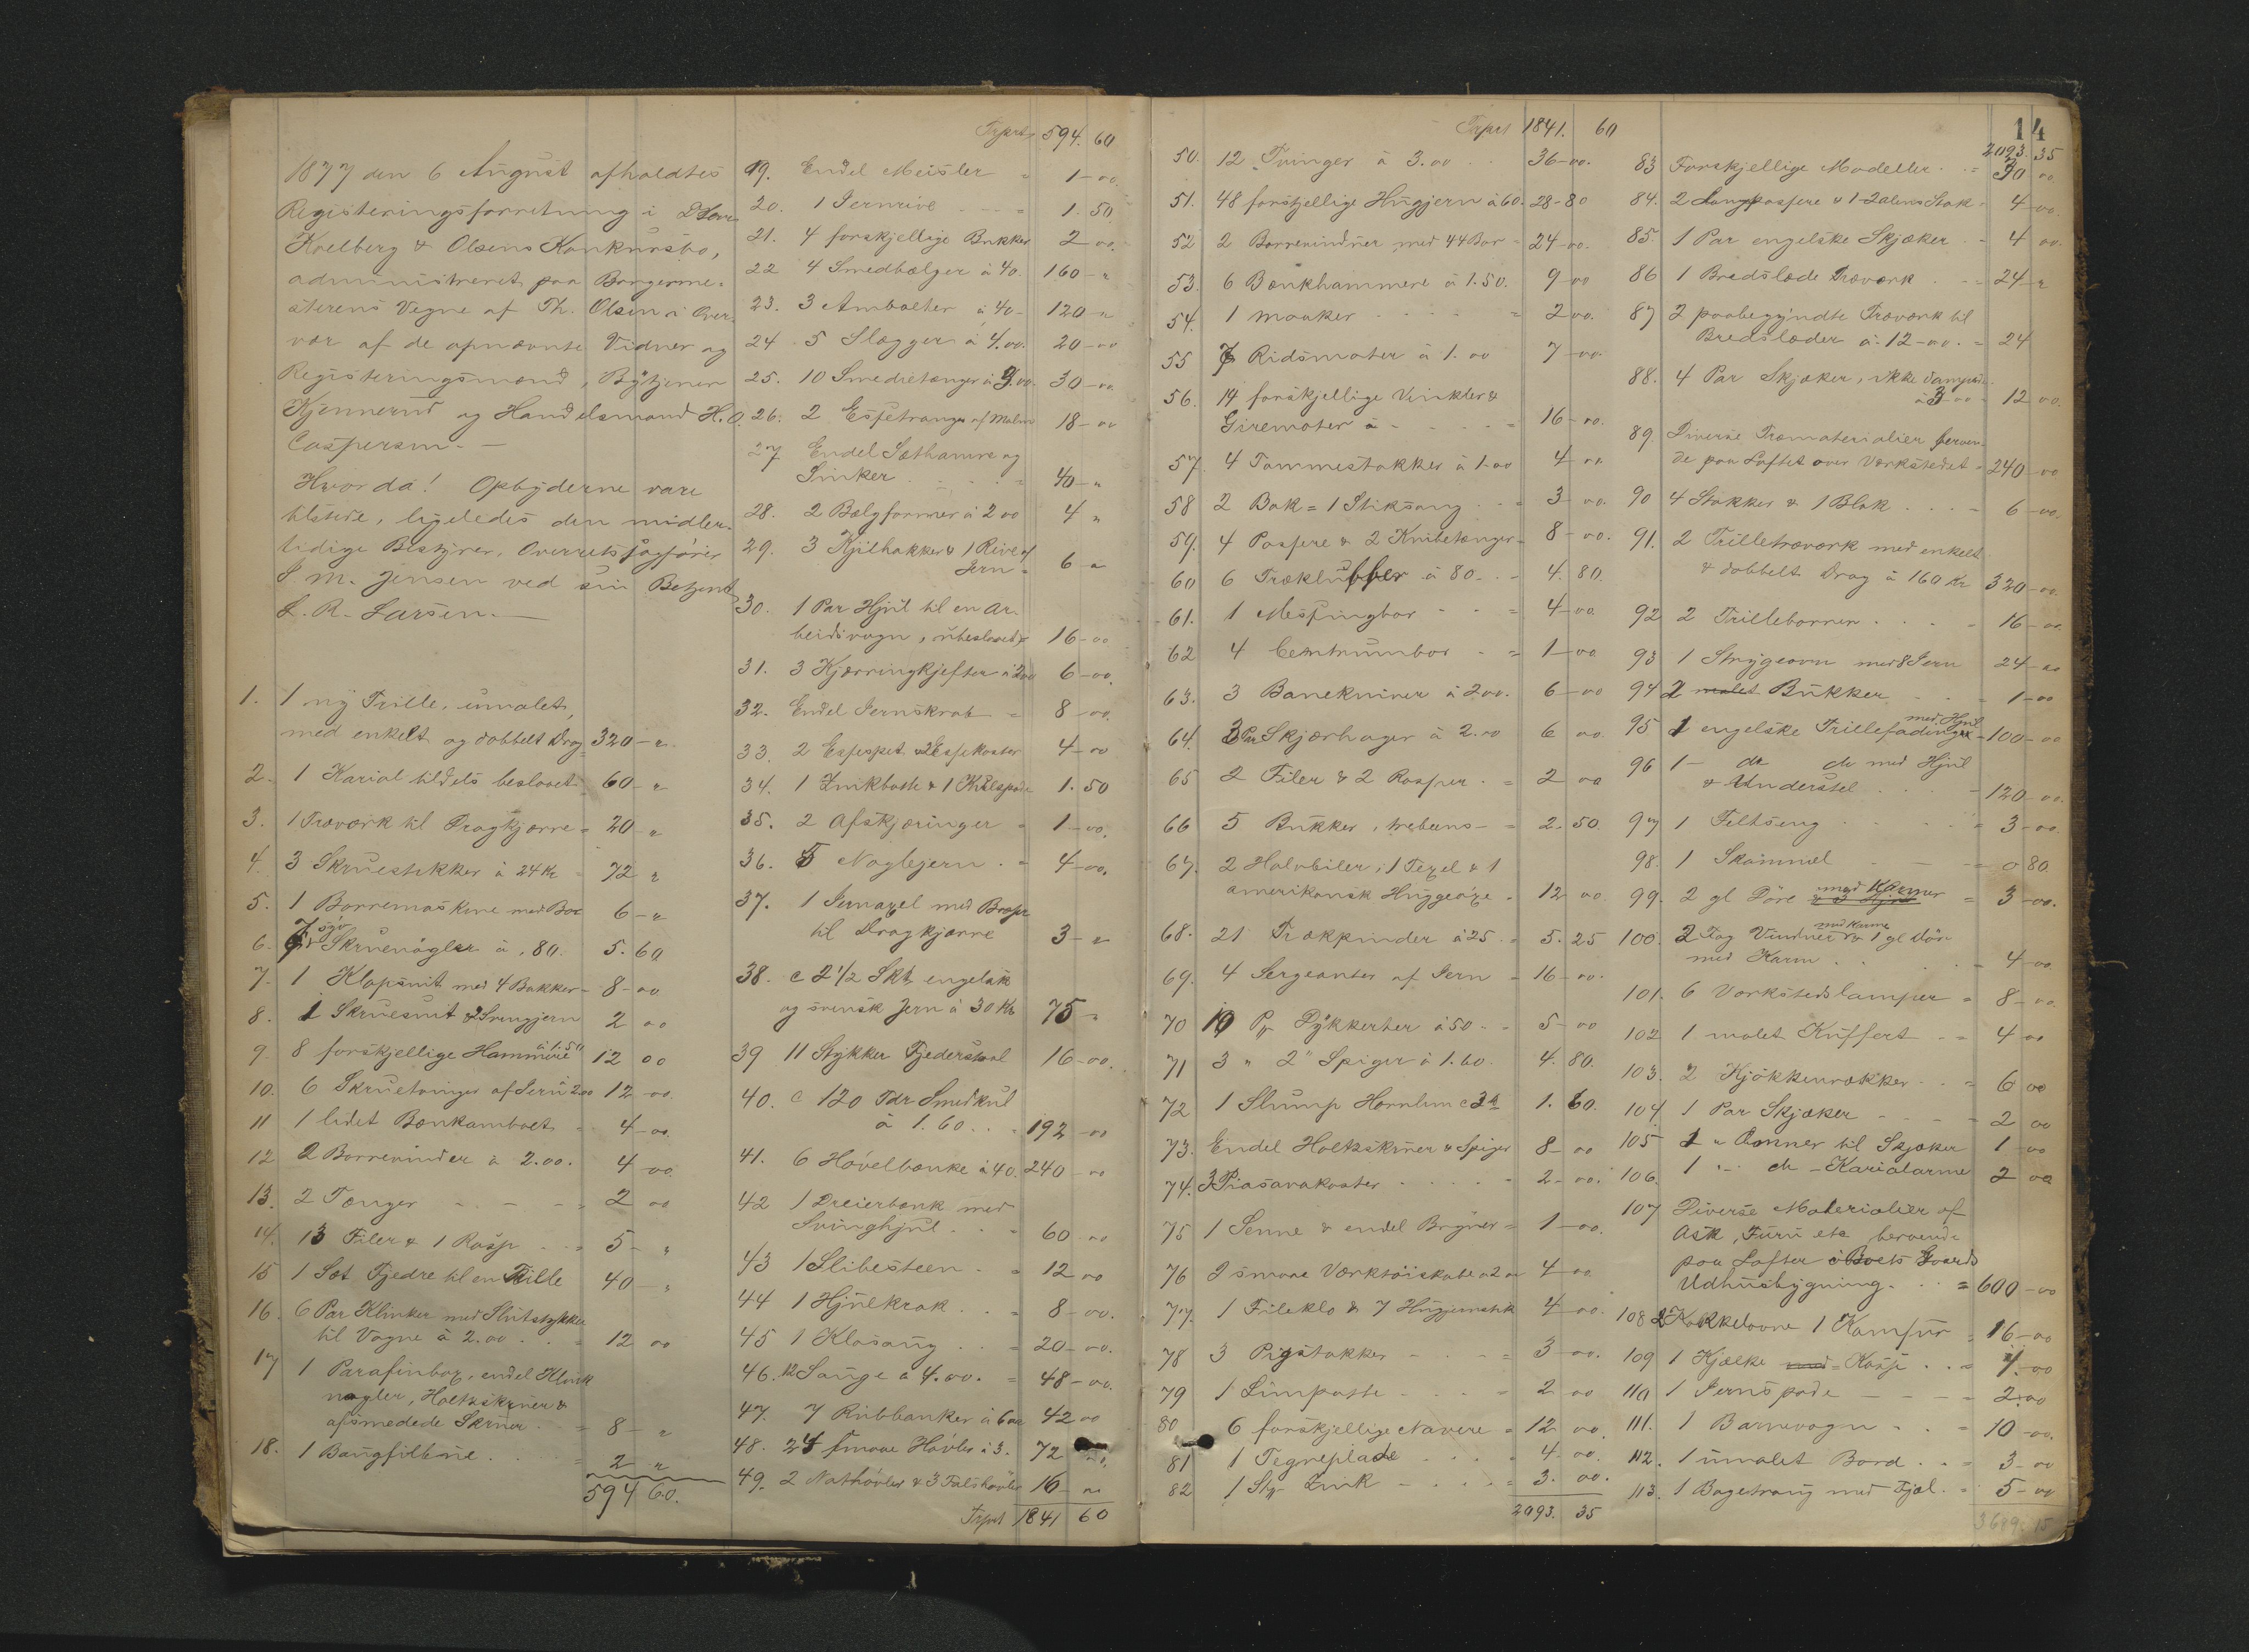 1877 den 6 August afholdtes
Registeringsforretning i
Kolberg & Olsens Konkursbo,
administreret paa Borgerme-
sterens Vegne af Th. Olsen i Over-
vær af de opnævnte Vidner og
Registeringsmænd, Bytjener
Kjennerud og Handelsmand H. O.
Caspersen. —
Hvorda! Opbyderne vare
tilstede, ligeledes den midler-
tidige Bestyrer, Overretssagfører
J. M. Jensen ved sin Betjent
L. R. Larsen. —
1. 1 ny Trille, umalet,
med enkelt og dobbelt Drag 320 - "
2. 1 Kariol tildels beslaaet 60 - "
3. 1 Træværk til Dragkjærre = 20 - "
4. 3 Skruestikker à 24 Kr = 72 "
5. 1 Borremaskine med Bor 6 - "
6. 7 Skruenøgler à ,80. 5. 60
7. 1 Klopsnit med 4 Bakker = 8 - 00
8. 1 Skruesnit & 2 Svingjern 2 00
9. 8 forskjellige Hammere à 1.50 12 00
10. 6 Skruetvinger af Jern 2.00 12 - 00.
11 1 lidet Bænkambolt = 4 - 00.
12 2 Borrevinder à 2.00. 4 00.
13. 2 Tænger - - - = 2 00
14. 13 Filer & 1 Rasp . . = 5 - "
15 1 Sæt Fjedre til en Trille 40 - "
16. 6 Par Klinker med Slutstykker
til Vogne à 2.00 . . = 12 00
17 1 Parafinbox, endel Klink
nagler, Holtzskruer &
afsmedede Skruer. = 8 - "
18. 1 Baugfilbue . . . = 2 "
594 60.
Trprt 594. 60
19. Endel Meisler = 1 - 00.
20. 1 Jernrive - - - = 1. 50.
21. 4 forskjellige Bukker 2 00.
22 4 Smedbælger à 40. 160 - "
23. 3 Ambolter à 40 - 120 - "
24 5 Slægger à 4.00. 20 - 00
25. 10 Smedietænger à 3.00. 30 - 00
26. 2 Essetranger af Malm 18 - 00
27 Endel Sæthamre og
Sinker . . . . = 40 - "
28. 2 Bælgformer à 2 00 4 "
29. 3 Kjilhakker & 1 Rive af
Jern = 6 - "
30. 1 Par Hjul til en Ar-
beidsvogn, ubeslaaet 16 - 00
31. 3 Kjærringkjefter à 2 00 6 - 00.
32. Endel Jernskrab = 8 - 00.
33. 2 Essespet & 2 Essekoster 4 - 00
34. 1 Zinkbøtte & 1 Kulspade 1. 50
35. 2 Afskjæringer = 1 - 00.
36. 5 Naglejern . = 4 - 00.
37. 1 Jernaxel med
til Dragkjærre 3 - "
38. c 2 1/2 Sk℔ engelsk
og svensk Jern à 30 Kr 75 - "
39 11 Stykker Fjederstaal 16 - 00.
40. c 120 Tdr Smedkul
à 1.60 . . = 192 - 00
41. 6 Høvelbænke à 40. 240 - 00
42 1 Dreierbænk med
Svinghjul . . = 60 00
43 1 Slibesteen . = 12 00
44 1 Hjulkrak . . = 8 - 00.
45 1 Klosaug . . = 20 - 00.
46. 12 Sauge à 4.00. = 48 - 00.
47. 7 Rubbanker à 6 00 42 00
48. 24 smaa Høvler à 3. 72 00.
49. 2 Nothøvler & 3 Falshøvler 16 - 00
Trprt 1841 60
Trprt 1841. 60
50. 12 Tvinger à 3.00 . . 36 - 00.
51. 48 forskjellige Hugjern à 60. 28 - 80
52 2 Borrevinder med 44 Bor = 24 - 00.
53. 6 Bænkhammere à 1.50. 9 - 00
54. 1 - - - - = 2 00.
55 7 Ridsmater à 1.00 7 - 00.
56. 14 forskjellige Vinkler &
Giremater à - - - - = 16 - 00.
57. 4 Tommestokker à 1.00 4 00
58 2 Bak = 1 Stiksaug - = 3 - 00.
59. 4 Passere & 2 Knibetænger = 8 - 00.
60 6 Træklubber à 80. . = 4. 80.
61. 1 Messingbor - - = 4 - 00.
62 4 Centrumbor - = 1 - 00
63. 3 Baneknive à 2 00. 6 - 00
64. 3 Par Skjærhager à 2.00 6 00.
65 2 Filer & 2 Rasper . = 2 00
66 5 Bukker, trebens - = 2. 50.
67. 2 Halvbiler, 1 Texel & 1
amerikansk Huggeøxe = 12 - 00.
68. 21 Trækpinder à 25 . = 5. 25
69. 4 Sergeanter af Jern = 16 - 00.
70 10 Dykkerter à 50 - = 5 - 00
71 3 " 2" Spiger à 1.60. 4. 80.
72 1 Slump Hornlim c 2 ℔ 1. 60.
73. Endel Holtzskruer & Spiger 8 - 00
74. 3 Piasavakoster - - - - = 2 - 00.
75 1 Senne & endel Bryner = 1 - 00.
76 2 smaa Værktøiskabe à 2 00 4 - 00.
77. 1 Fileklo & 7 Hugjernskaft 4 - 00.
78 3 Pigstokker - - - = 3 - 00.
79 1 Limpotte - - - . = 2 00
80 6 forskjellige Navere = 12 00.
81 1 Tegneplade . . . . 4 - 00.
82 1 Stk Zink - - - . = 3. 00.
2093. 35
14
2093. 35
83 Forskjellige Modeller . . = 30 00.
84. 2 Langpassere & 1 2 alens Stok = 4 - 00.
85. 1 Par engelske Skjæker . - 4 00.
86 1 Bredslæde Træværk . . = 24 - "
87 2 paabegyndte Træværk til
Bredslæder à 12 - 00. = 24
88. 4 Par Skjæker, ikke dampede
à 3 - 00 12 00.
89. Diverse Træmaterialier beroen-
de paa Loftet over Værkstedet = 240 - 00
90 4 Stokker & 1 Blok . . . = 6 - 00.
91. 2 Trilletræværk med enkelt
& dobbelt Drag à 160 Kr 320 - 00.
92 2 Trillebørrer . . . . = 16 - 00.
93 1 Strygeovn med 8 Jern 24 - 00
94 2 malet Bukker - - = 1 - 00
95 1 engelske Trillefadinger med Hjul = 100 - 00
96 1 - do do med Hjul
& Understel . . . = 120 - 00.
97 1 Feltseng . . . . = 3 - 00.
98. 1 Skammel - - - 0 80.
99. 2 gl Døre med Karmer = 3 - 00.
100. 2 Fag Vinduer med Karme & 1 gl Dør
med Karm . . . . = 4 - 00
101. 6 Værkstedslamper = 8 - 00.
102 1 malet Kuffert . . = 4 00
103. 2 Kjøkkenrækker . . = 6 00
104. 1 Par Skjæker - - - . 2 00
105 1 " Emner til Skjæker 1 - 00
106. 1 " do - Kariolarme 2 00
107 Diverse Materialier af
Ask, Furu etc beroende
paa Lofter i Boets Gaards
Udhusbygning . . . = 600 - 00
108 2 Kakkelovne 1 Komfur = 16 - 00
109 1 Kjælke med Kasse . . = 4. 00
110 1 Jernspade - - - - = 2. 00
111. 1 Barnevogn . . . = 10 - 00.
112. 1 umalet Bord . . = 3 - 00
113. 1 Bagetraug med Fjæl. = 5 - 00
3689. 15